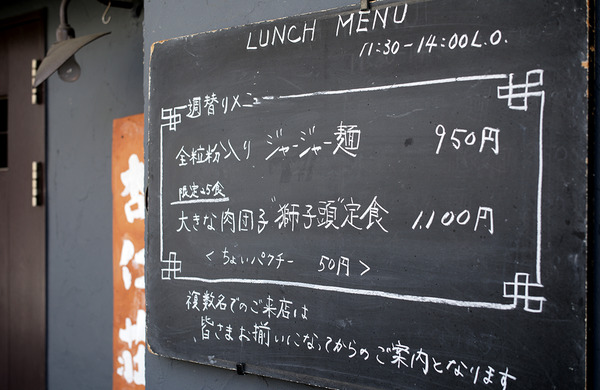 LUNCH MENU
11:30-14:00 L.O.
週替りメニュー
全粒粉入り ジャージャー麺 950円
限定25食
大きな肉団子"獅子頭"定食 1,100円
<ちょいパクチー 50円>
複数名でのご来店は
皆さまお揃いになってからのご案内となります
杏仁荘